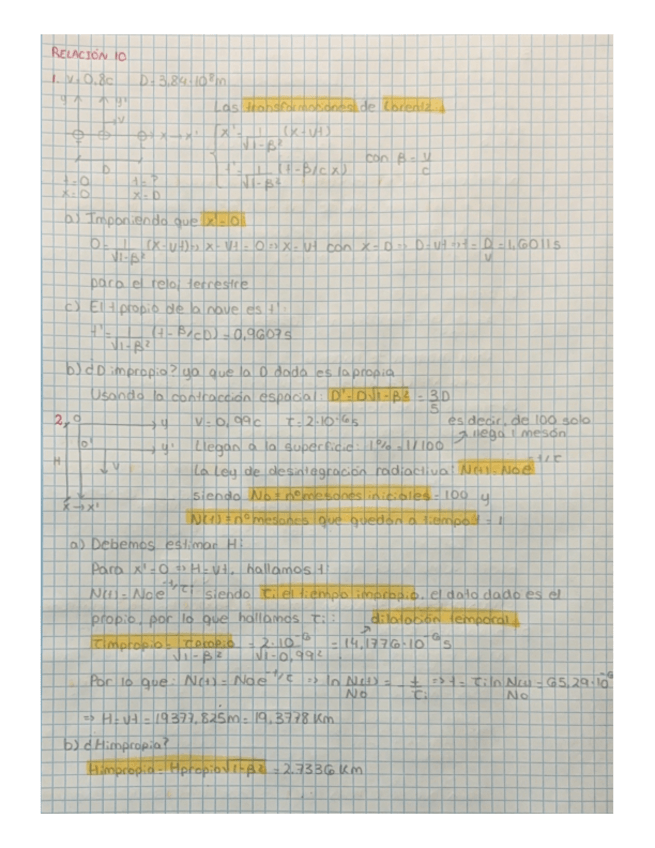 RELACIÓN 10
1. v=0,8c D=3,84·10⁸m
y y'
Las transformaciones de Lorentz:
v
x→x'
x' = 1/√1-β² (x-vt)
t' = 1/√1-β² (t-β/c x) con β = v/c
D
t=0 t=?
x=0 x=D
a) Imponiendo que x'=0:
0 = 1/√1-β² (x-vt) ⇒ x-vt=0 ⇒ x=vt con x=D ⇒ D=vt ⇒ t = D/v = 1,6011s
para el reloj terrestre
c) El t propio de la nave es t':
t' = 1/√1-β² (t-β/c D) = 0,9607s
b) ¿D impropio? ya que la D dada es la propia
Usando la contracción espacial: D'=D√1-β² = 3/5 D
2. O y v=0,99c τ=2·10⁻⁶s es decir, de 100 solo
O' y' Llegan a la superficie: 1%=1/100 ↗ llega 1 mesón
H v La ley de desintegración radiactiva: N(t)=N₀e^-t/τ
siendo N₀=nº mesones iniciales = 100 y
x→x' N(t)=nº mesones que quedan a tiempo t = 1
a) Debemos estimar H:
Para x'=0 ⇒ H=vt, hallamos t:
N(t)=N₀e^-t/τi siendo τi el tiempo impropio, el dato dado es el
propio, por lo que hallamos τi: dilatación temporal
τimpropio = τpropio/√1-β² = 2·10⁻⁶/√1-0,99² = 14,1776·10⁻⁶s
Por lo que: N(t)=N₀e^-t/τ ⇒ ln N(t)/N₀ = -t/τi ⇒ t=τi ln N(t)/N₀ = 65,29·10⁻⁶
⇒ H=vt=19377,825m=19,3778 Km
b) ¿H impropia?
Himpropia=Hpropio√1-β² = 2.7336 Km